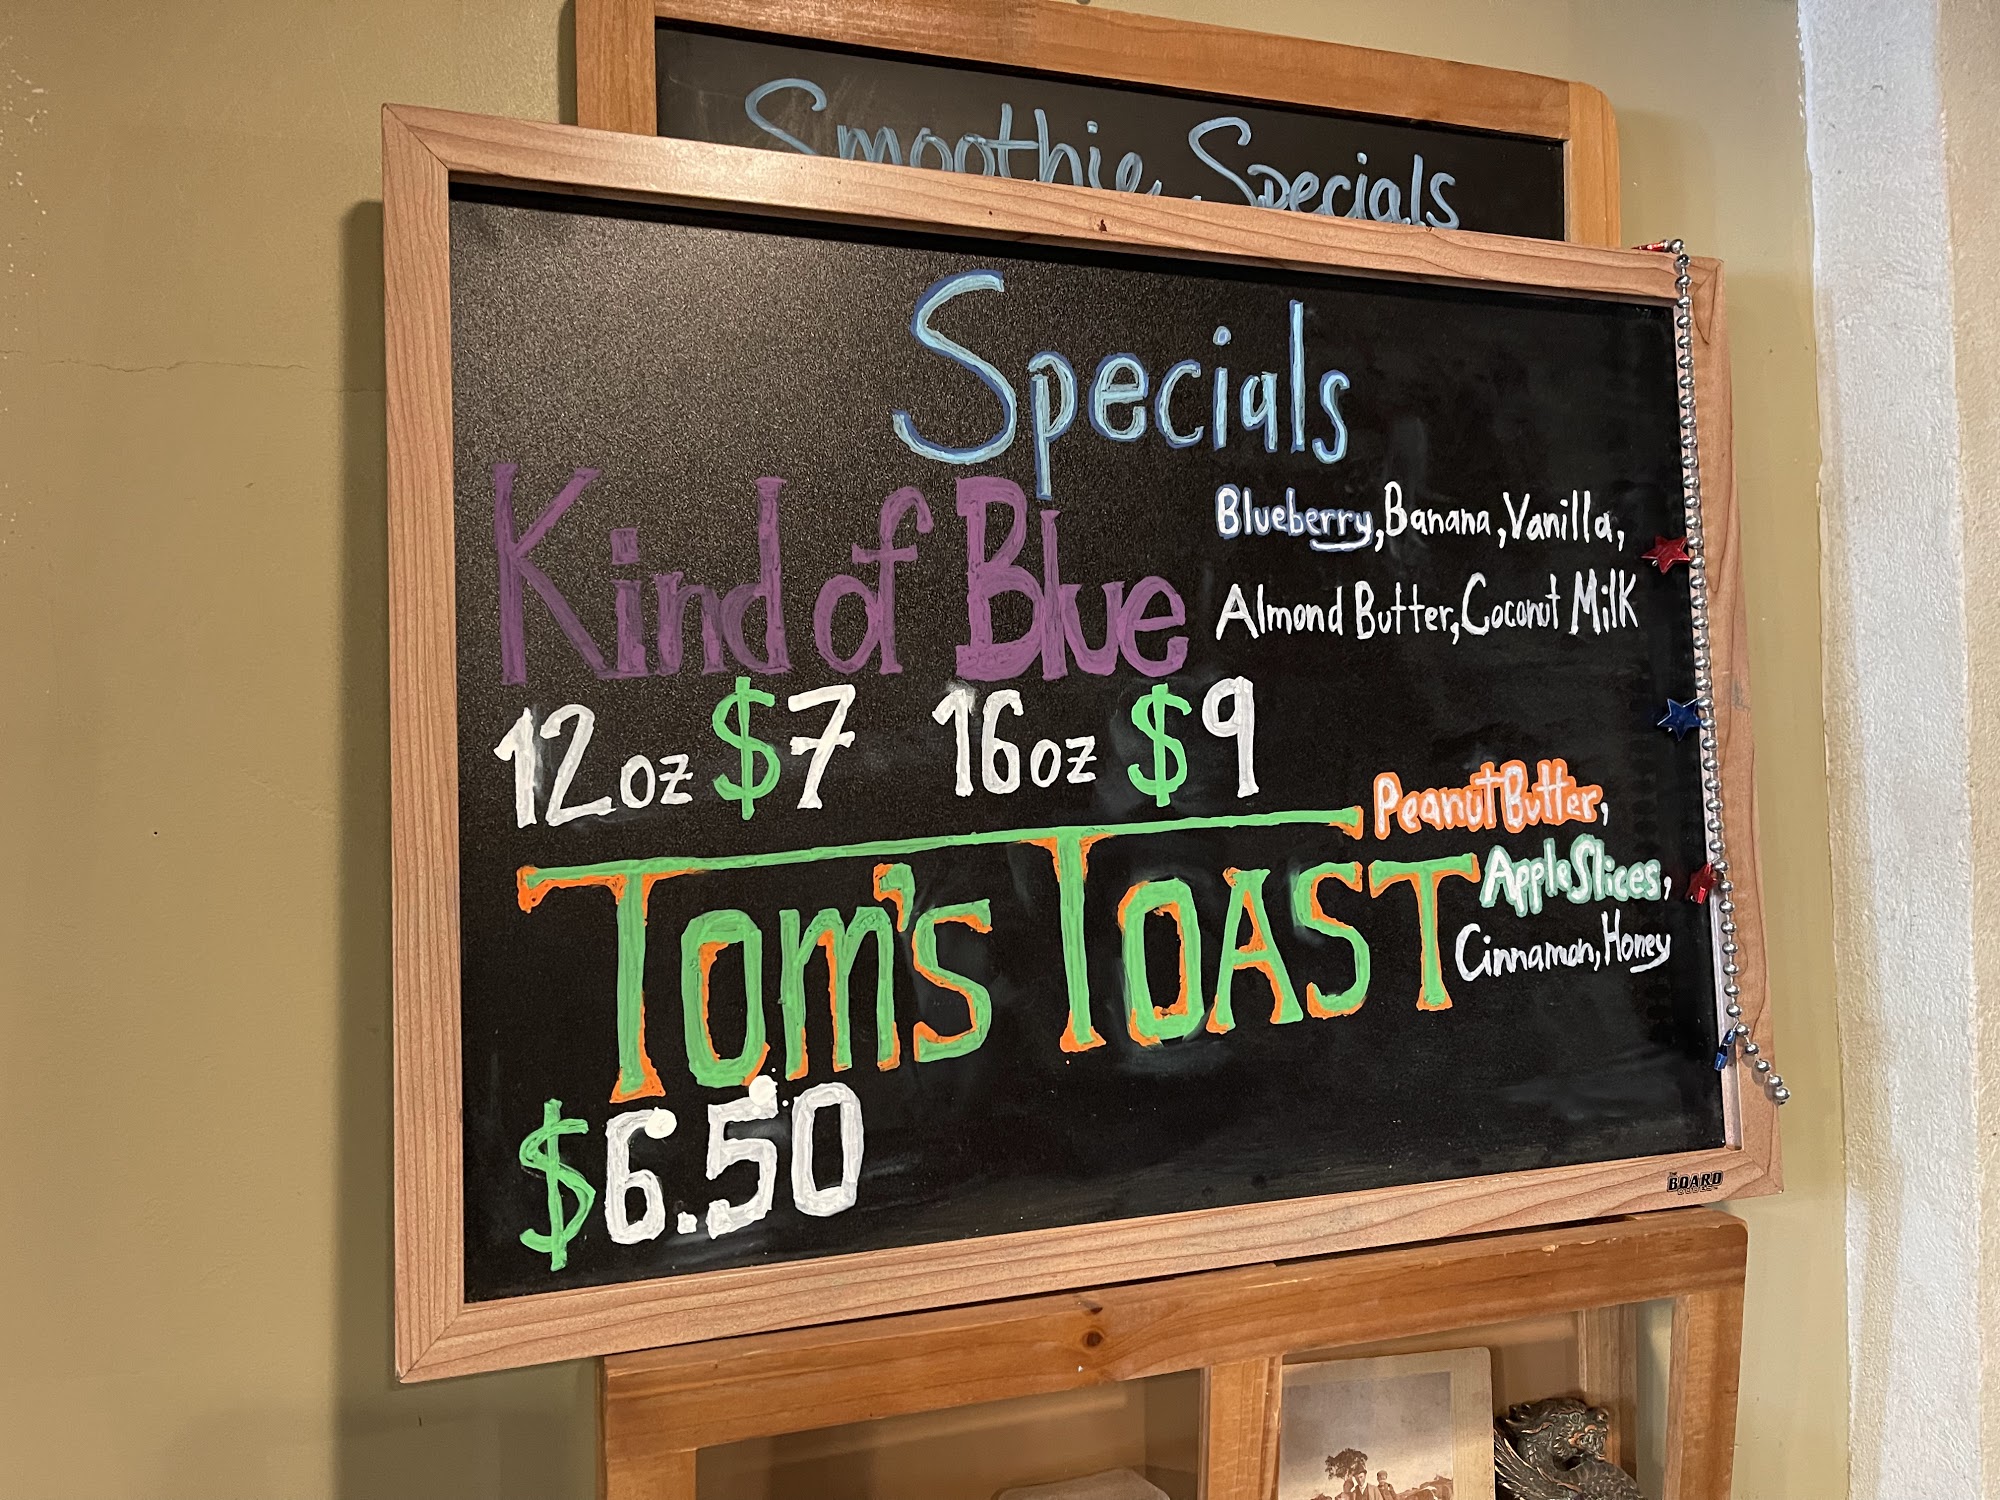 Smoothie Specials
Specials
Kind of Blue
Blueberry, Banana, Vanilla,
Almond Butter, Coconut Milk
12oz $7 16oz $9
Tom's Toast
Peanut Butter,
Apple Slices,
Cinnamon, Honey
$6.50
THE
BOARD